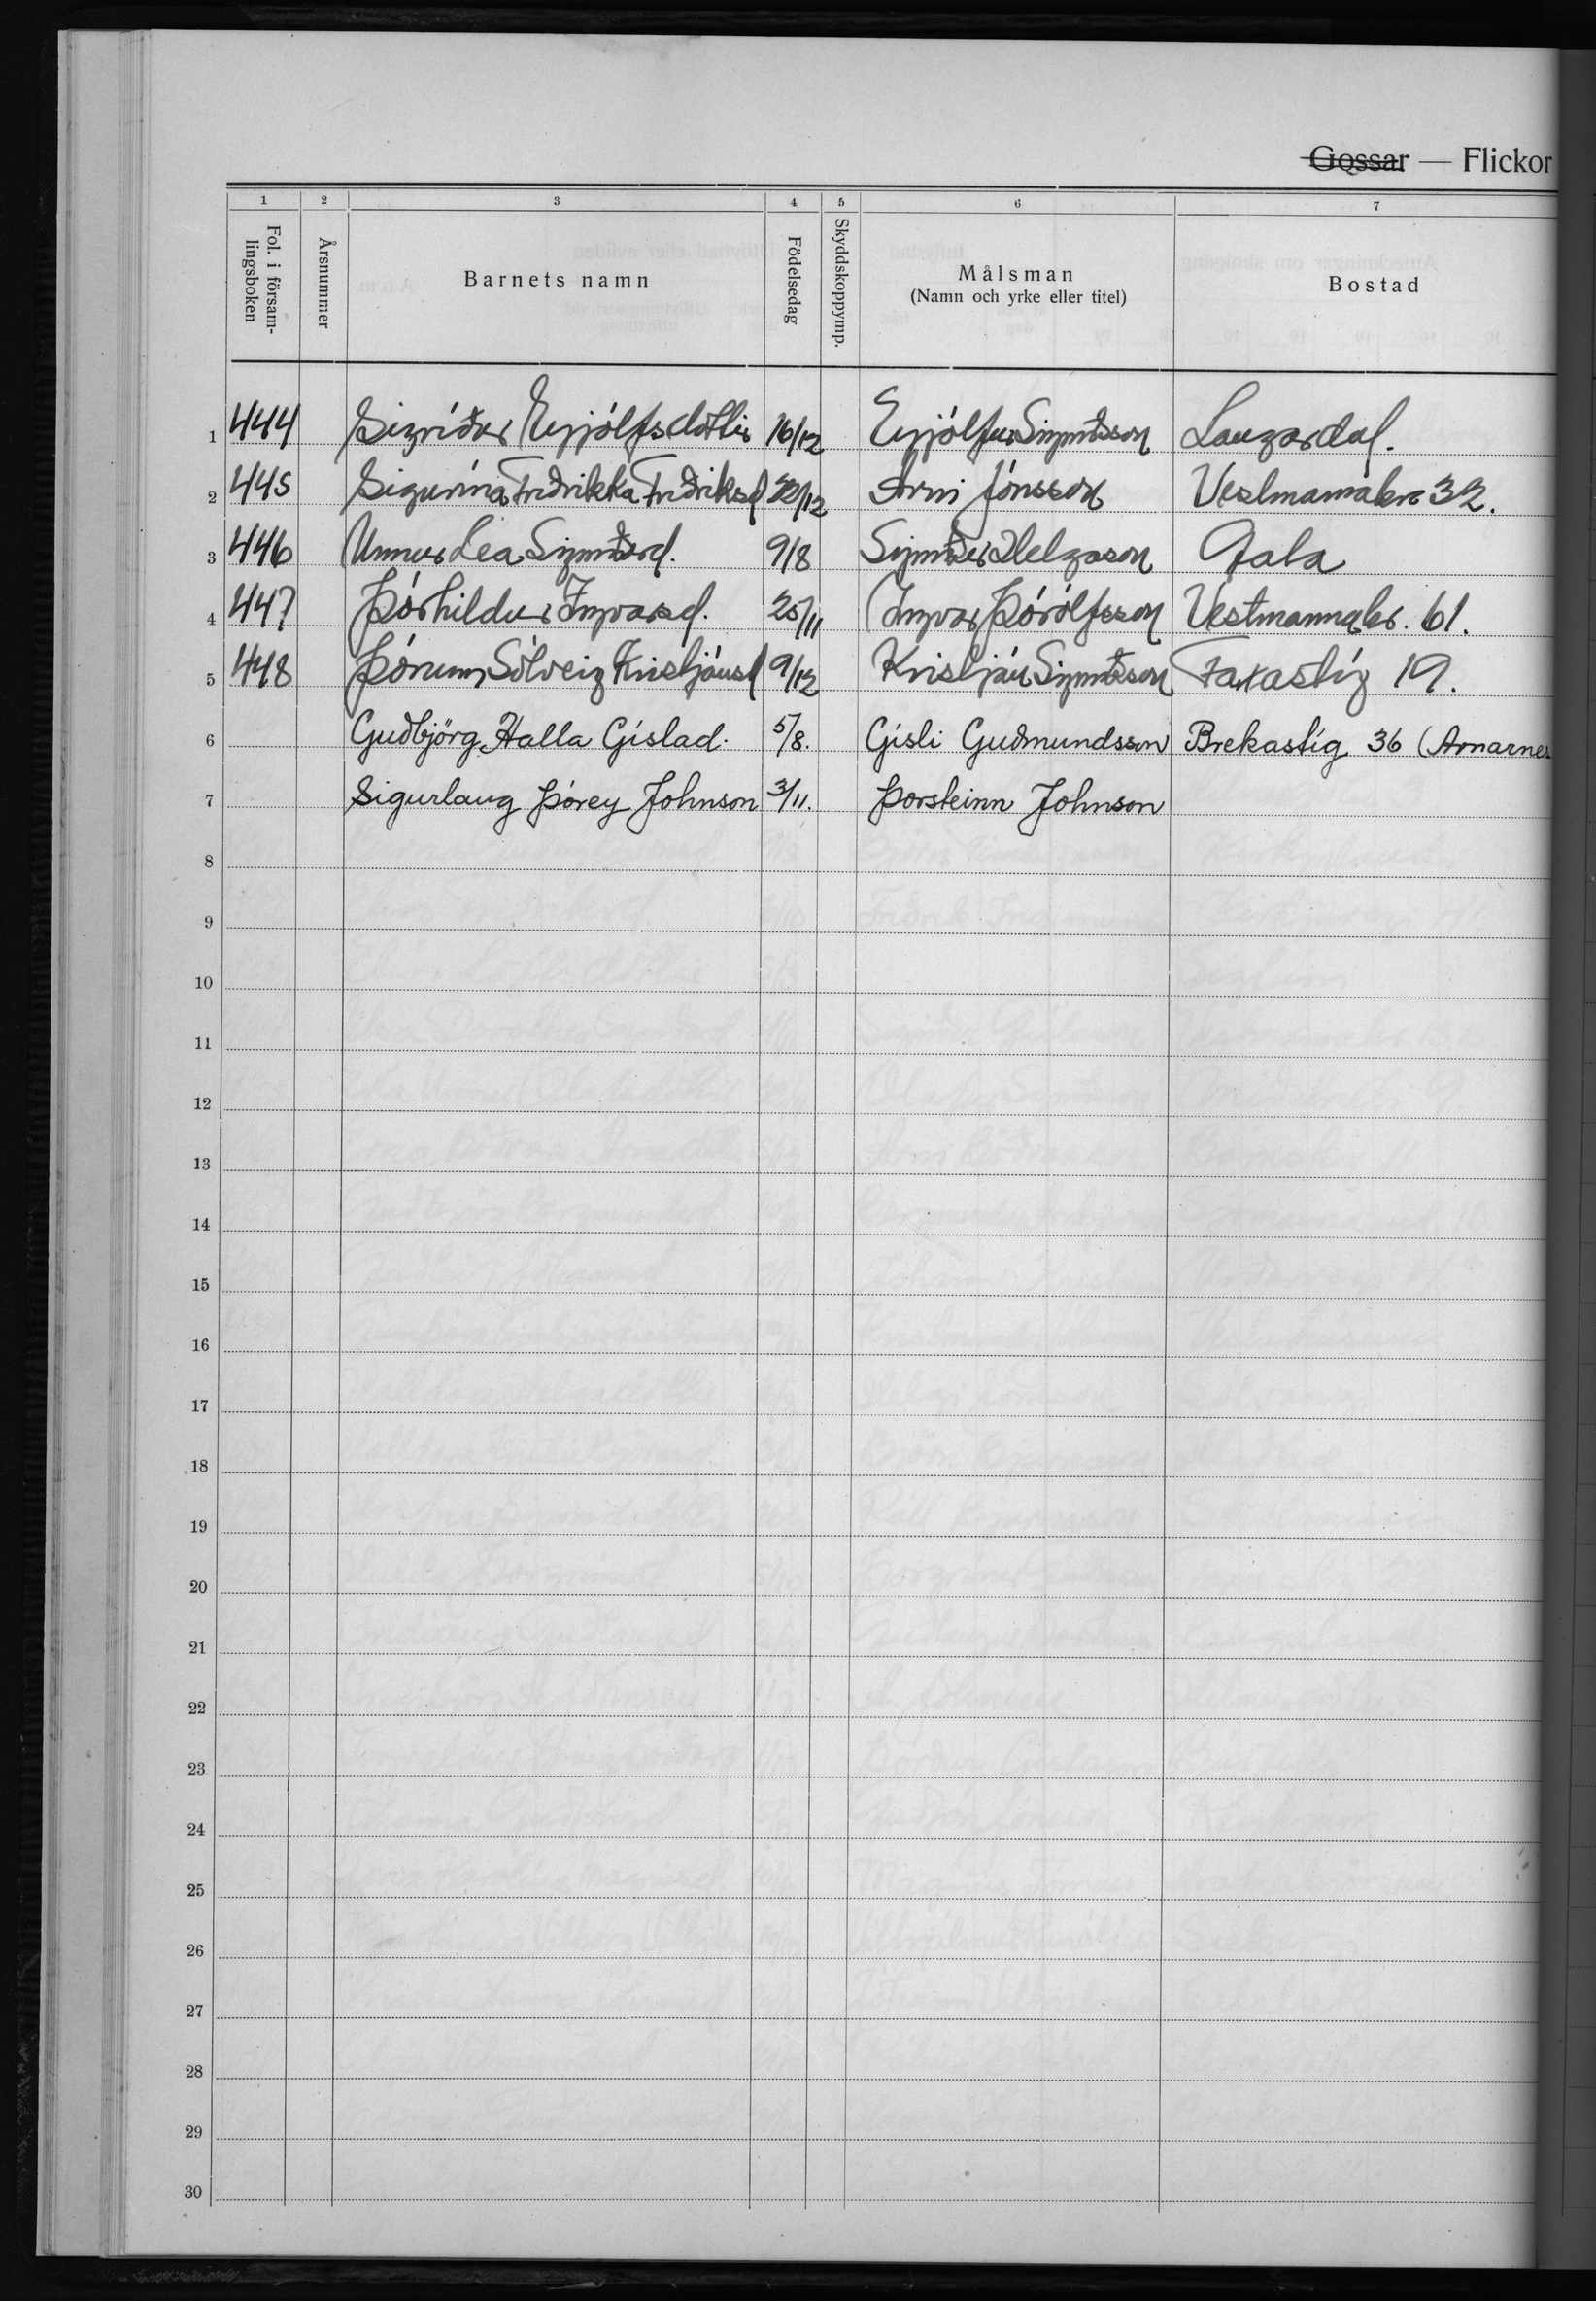 Gossar — Flickor
1 2 3 4 5 6 7
Fol. i försam-
lingsboken
Årsnummer
Barnets namn
Födelsedag
Skyddskoppymp.
Målsman
(Namn och yrke eller titel)
Bostad
1 444 Sigríður Eyjólfsdóttir 16/12 Eyjólfur Sigurðsson Laugardal.
2 445 Sigurína Friðrikka Friðriksd 22/12 Árni Jónsson Vestmannabr 32.
3 446 Unnur Lea Sigurðard. 9/8 Sigurður Helgason
4 447 Þórhildur Ingvarsd. 25/11 Ingvar Þórólfsson Vestmannabr. 61.
5 448 Þórunn Sólveig Kristjánsd 9/12 Kristján Sigurðsson Faxastíg 19.
6 Guðbjörg Halla Gíslad. 5/8. Gísli Guðmundsson Brekastíg 36 (Arnarnes
7 Sigurlaug Þórey Johnson 3/11. Þorsteinn Johnson
8
9
10
11
12
13
14
15
16
17
18
19
20
21
22
23
24
25
26
27
28
29
30